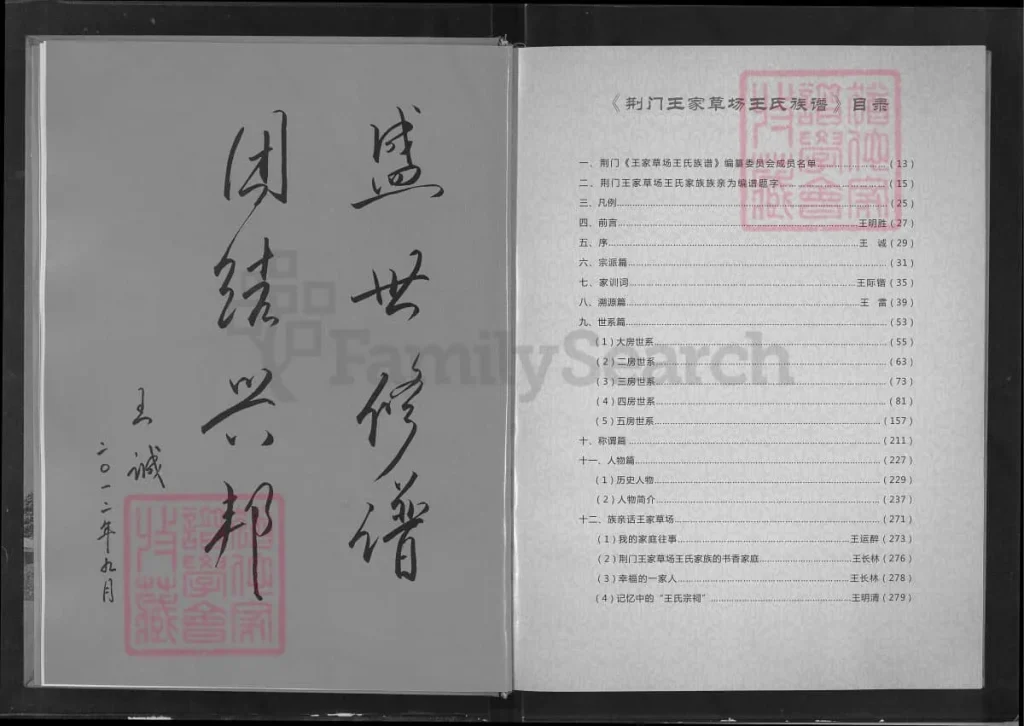 盛世修谱
团结兴邦
王诚
二〇一二年九月
《荆门王家草场王氏族谱》目录
一、荆门《王家草场王氏族谱》编纂委员会成员名单……………………(13)
二、荆门王家草场王氏家族族亲为编谱题字……………………(15)
三、凡例……………………(25)
四、前言……………………王明胜(27)
五、序……………………王 诚(29)
六、宗派篇……………………(31)
七、家训词……………………王际锴(35)
八、溯源篇……………………王 雷(39)
九、世系篇……………………(53)
(1)大房世系……………………(55)
(2)二房世系……………………(63)
(3)三房世系……………………(73)
(4)四房世系……………………(81)
(5)五房世系……………………(157)
十、称谓篇……………………(211)
十一、人物篇……………………(227)
(1)历史人物……………………(229)
(2)人物简介……………………(237)
十二、族亲话王家草场……………………(271)
(1)我的家庭往事……………………王运醉(273)
(2)荆门王家草场王氏家族的书香家庭……………………王长林(276)
(3)幸福的一家人……………………王长林(278)
(4)记忆中的“王氏宗祠”……………………王明清(279)
FamilySearch